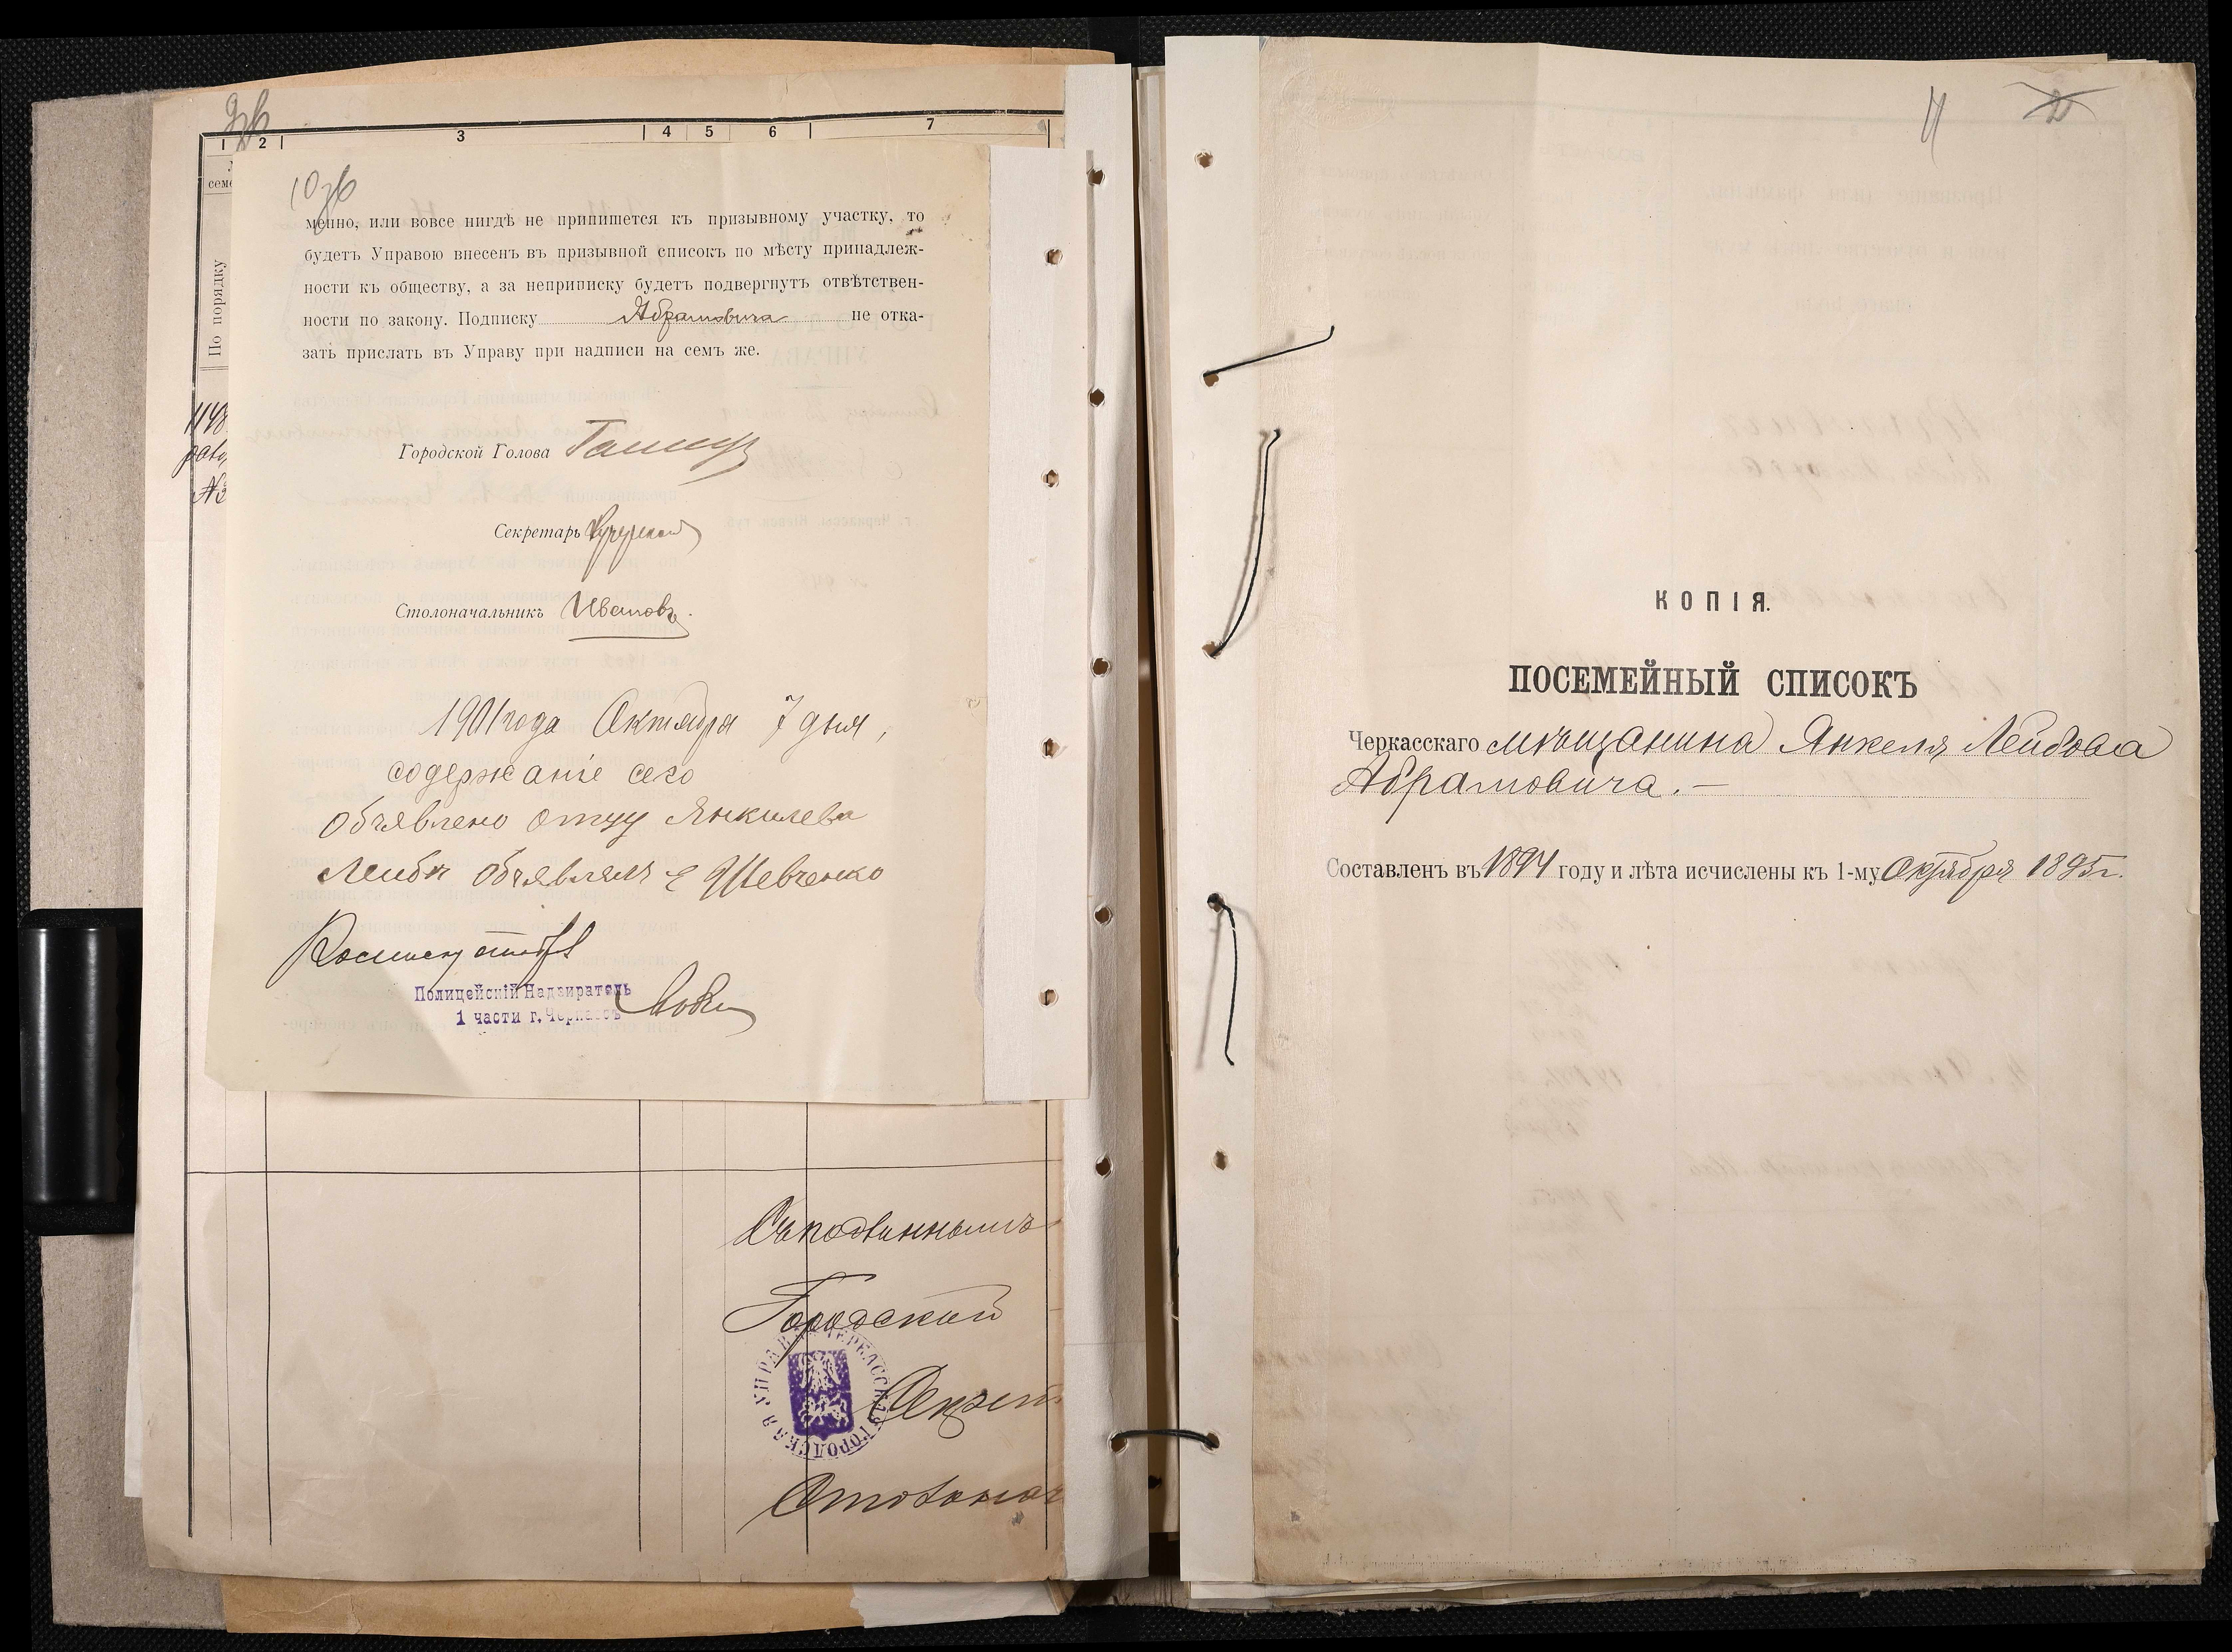 1 2 3 4 5 6 7
По порядку
10об
менно, или вовсе нигдѣ не припишется къ призывному участку, то
будетъ Управою внесенъ въ призывной списокъ по мѣсту принадлеж-
ности къ обществу, а за неприписку будетъ подвергнутъ отвѣтствен-
ности по закону. Подписку Абрамовича не отка-
зать прислать въ Управу при надписи на семъ же.
Городской Голова
Секретарь
Столоначальникъ Ивановъ.
1901 года Октября 7 дня,
содержаніе сего
объявлено отцу Янкилева
Лейбѣ объявлялъ Шевченко
Полицейскій Надзиратель
1 части г. Черкассъ
Съ подлиннымъ
Городской
ЧЕРКАССКАЯ ГОРОДСКАЯ УПРАВА
Секрет
Столонач
11 2
КОПІЯ.
ПОСЕМЕЙНЫЙ СПИСОКЪ
Черкасскаго мѣщанина Янкеля Лейбова
Абрамовича. —
Составленъ въ 1894 году и лѣта исчислены къ 1-му Октября 1895 г.